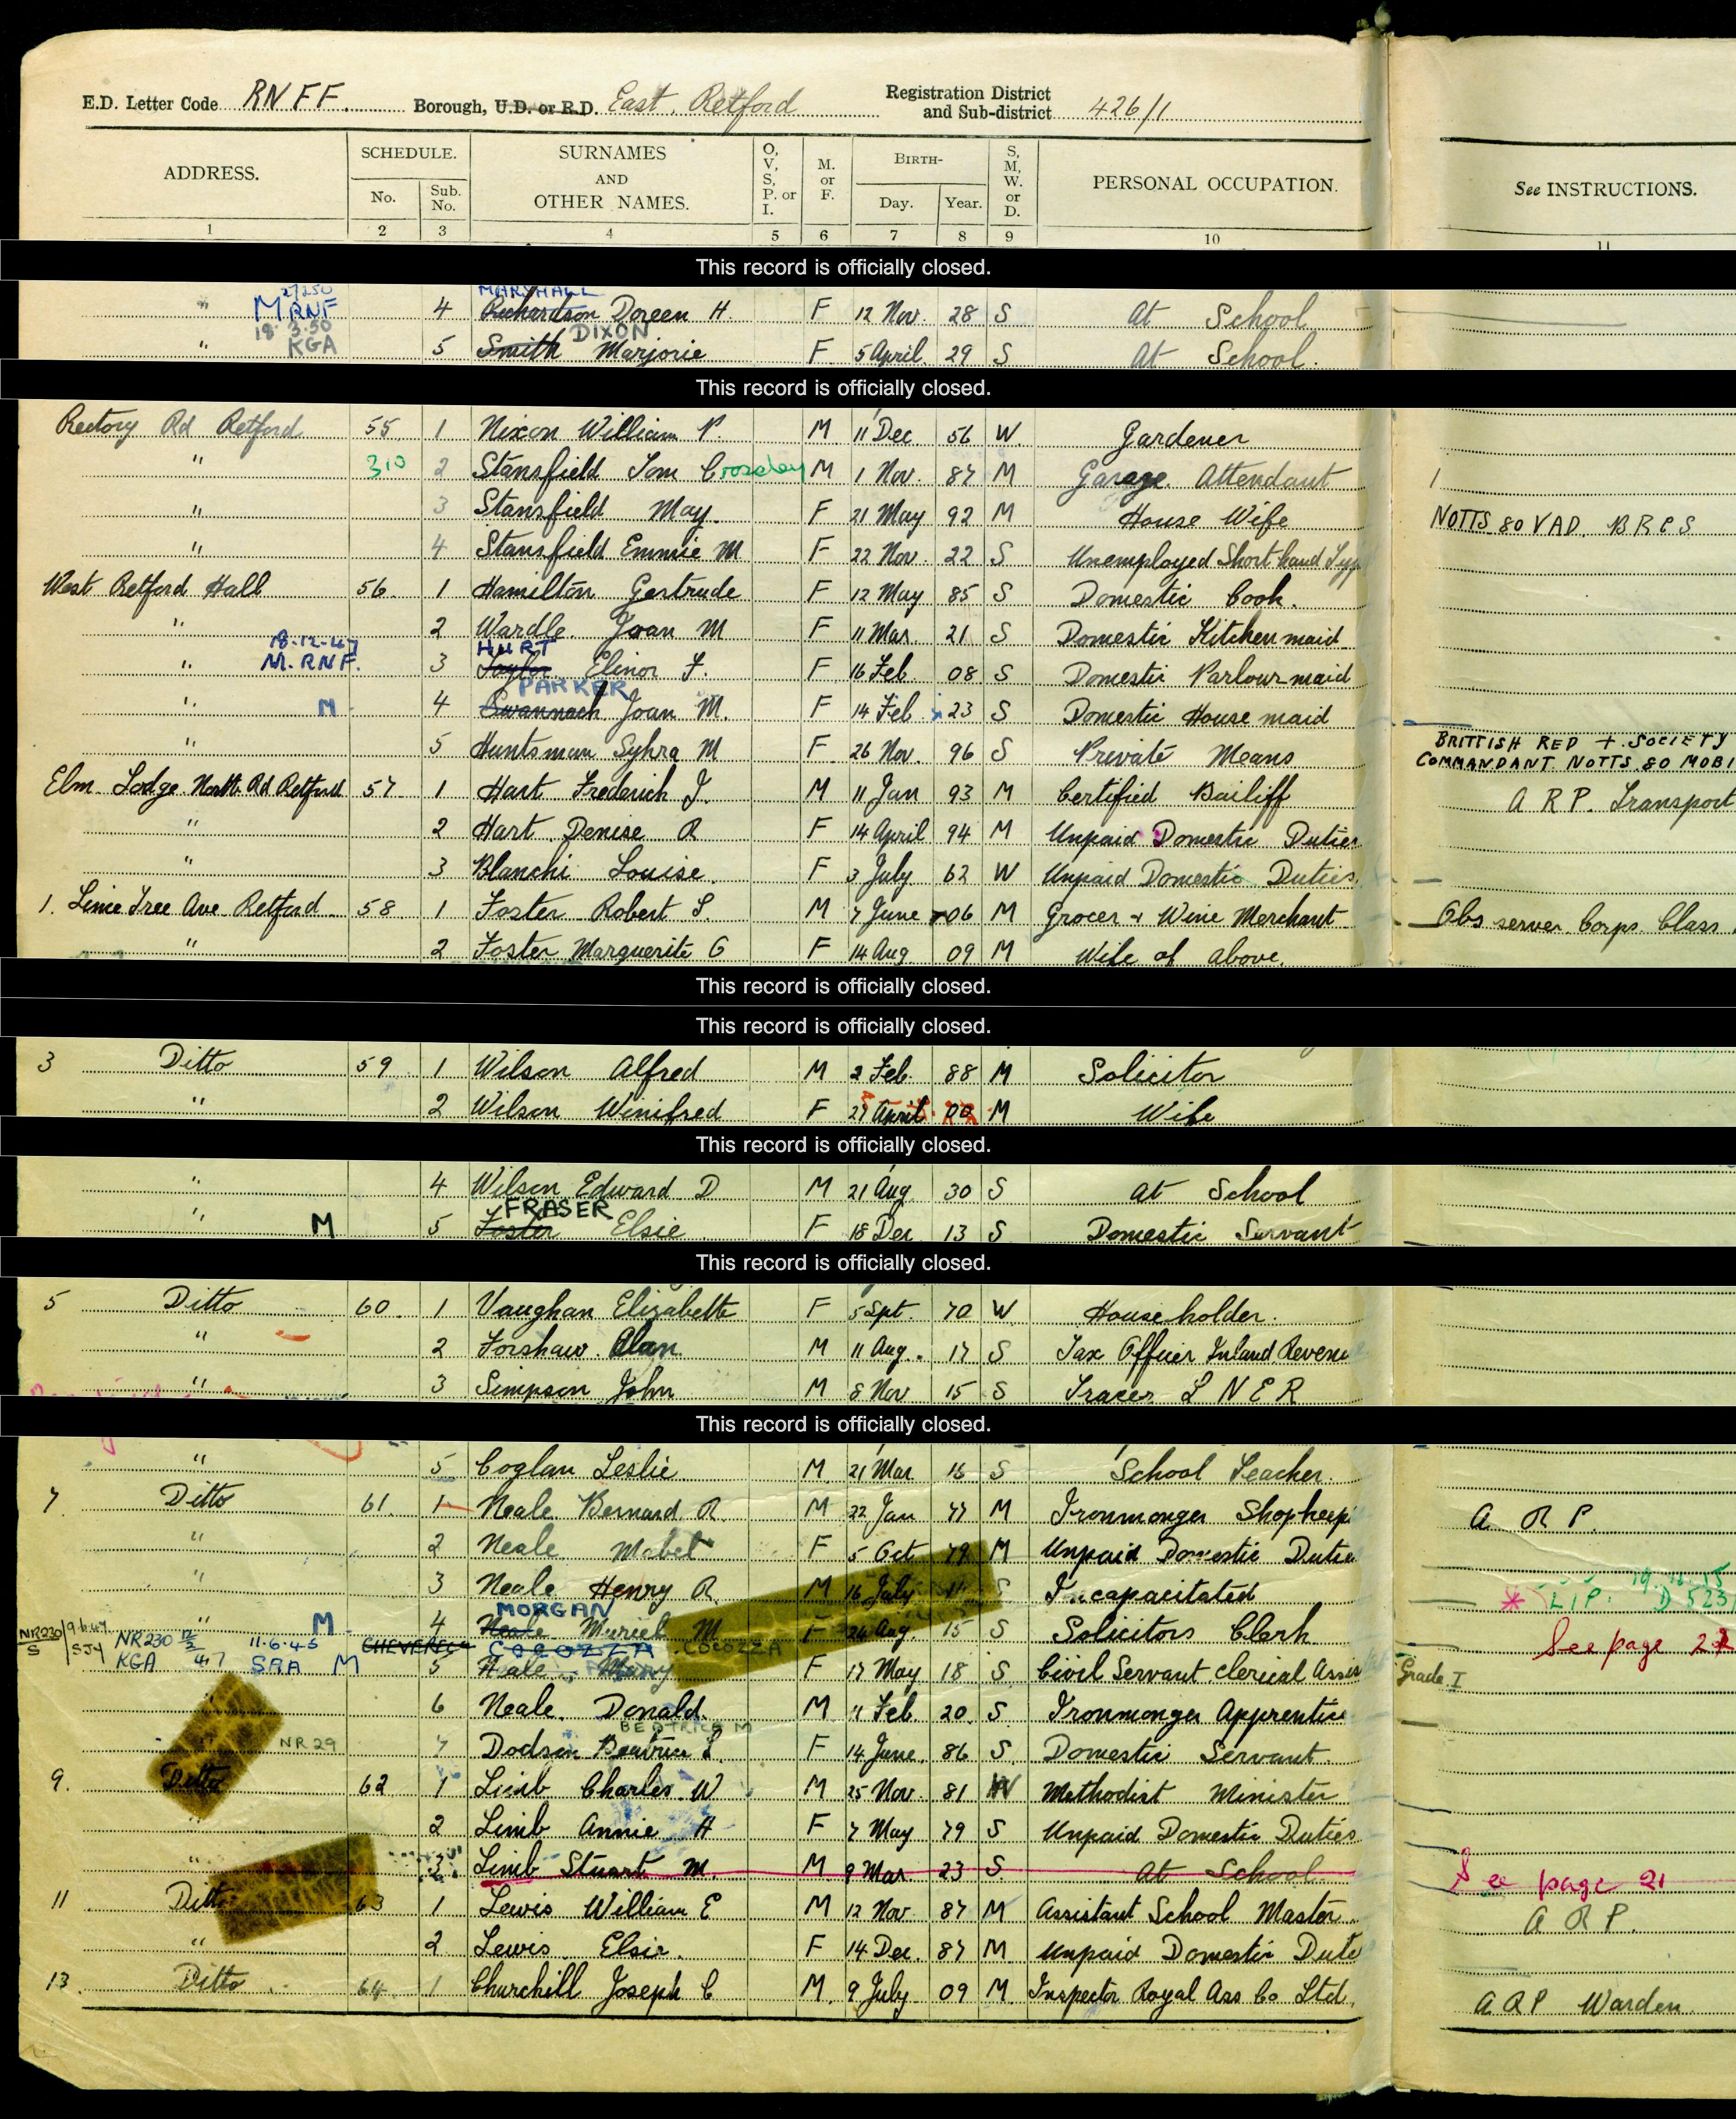 E.D. Letter Code RNFF. Borough, U.D. or R.D. East Retford Registration District and Sub-district 426/1
ADDRESS. SCHEDULE. No. Sub. No. SURNAMES AND OTHER NAMES. O, V, S, P. or I. M. or F. BIRTH- Day. Year. S, M, W. or D. PERSONAL OCCUPATION. See INSTRUCTIONS.
1 2 3 4 5 6 7 8 9 10 11
This record is officially closed.
27250 MARSHALL
" M RNF 4 Richardson Doreen H. F 12 Nov. 28 S At School
18.3.50 DIXON
" KGA 5 Smith Marjorie F 5 April 29 S At School.
This record is officially closed.
Rectory Rd Retford 55 1 Nixon William P. M 11 Dec 56 W. Gardener
" 310 2 Stansfield Tom Crossley M 1 Nov. 87 M Garage Attendant 1
" 3 Stansfield May. F 21 May 92 M House Wife NOTTS 80 VAD. BRCS
" 4 Stansfield Emmie M F 22 Nov. 22 S Unemployed Short hand Typ
West Retford Hall 56. 1 Hamilton Gertrude F 12 May 85 S Domestic Cook.
" 2 Wardle Joan M F 11 Mar 21 S Domestic Kitchen maid
18.12.47 HURT
" M. RNF. 3 Taylor Elinor F. F 16 Feb 08 S Domestic Parlour maid
PARKER
" M 4 Swannack Joan M. F 14 Feb 23 S Domestic House maid
" 5 Huntsman Sylvra M F 26 Nov. 96 S Private Means BRITTISH RED + SOCIETY
COMMANDANT NOTTS 80 MOBI
Elm Lodge North Rd Retford 57 1 Hart Frederick J. M 11 Jan 93 M Certified Bailiff A R P. Transport
" 2 Hart Denise R F 14 April 94 M Unpaid Domestic Duties
" 3 Blanchi Louise. F 3 July 62 W Unpaid Domestic Duties
1. Lime Tree Ave Retford 58 1 Foster Robert S. M 7 June 06 M Grocer + Wine Merchant Obs server Corps. Class
" 2 Foster Marguerite G F 14 Aug 09 M Wife of above.
This record is officially closed.
This record is officially closed.
3 Ditto 59 1 Wilson Alfred M 2 Feb. 88 M Solicitor
" 2 Wilson Winifred F 27 April 00 M Wife
This record is officially closed.
" 4 Wilson Edward D M 21 Aug 30 S At School
FRASER
" M 5 Foster Elsie F 18 Dec 13 S Domestic Servant
This record is officially closed.
5 Ditto 60. 1 Vaughan Elizabeth F 5 Spt. 70 W House holder.
" 2 Forshaw Alan M 11 Aug. 17 S Tax Officer Inland Revenue
" 3 Simpson John M 8 Nov 15 S Tracer L N E R
This record is officially closed.
" 5 Coglan Leslie M. 21 Mar 16 S School Teacher.
7 Ditto 61. 1 Neale Bernard R. M 22 Jan 77 M Ironmonger Shopkeep A R P.
" 2 Neale Mabel F 5 Oct 79 M Unpaid Domestic Dutie
" 3 Neale Henry R. M 16 July 11 S Incapacitated LIP. D523
MORGAN
" M 4 Neale Muriel M F 24 Aug 15 S Solicitors Clerk See page 22
NR230 S 9.6.47 SJY NR230 KGA 12/2 47 11.6.45 SAA M CHEVEREL COCOZZA COCOZZA
5 Neale Mary F 17 May 18 S Civil Servant clerical Assis Grade I
6 Neale Donald. M 11 Feb 20 S. Ironmonger Apprentice
BEATRICE M
NR29 7 Dodson Beatrice L F 14 June 86 S Domestic Servant
9. Ditto 62 1 Limb Charles W M 25 Nov. 81 W Methodist Minister
" 2 Limb Annie H F 7 May 79 S Unpaid Domestic Duties
" 3 Limb Stuart M. M 9 Mar. 23 S At School. See page 21
11 Ditto 63 1 Lewis William E M 12 Nov 87 M Assistant School Master A R P.
" 2 Lewis Elsie. F 14 Dec. 87 M Unpaid Domestic Dute
13 Ditto 64 1 Churchill Joseph C M. 9 July 09 M Inspector Royal Ass Co Ltd. A R P Warden